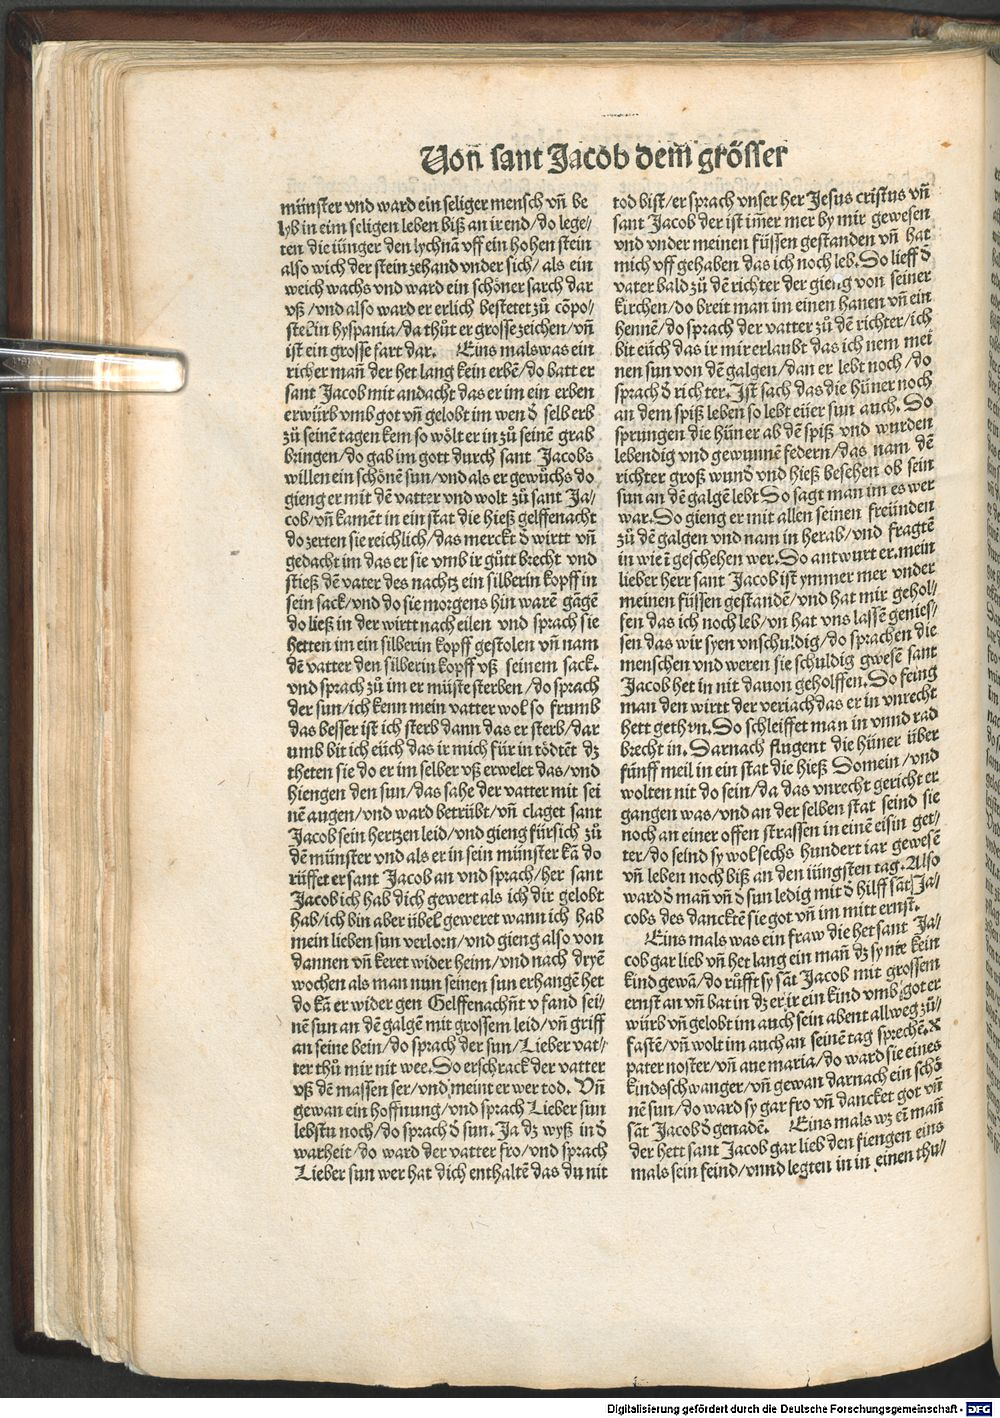 Von̄ sant Jacob dem̄ grösser
münster vnd ward ein seliger mensch vn̄ be
lyb in eim seligen leben biß an ir end/do lege/
ten die iünger den lychnā vff ein hohen stein
also wich der stein zehand vnder sich/ als ein
weich wachs vnd ward ein schöner sarch dar
vß/vnd also ward er erlich bestetet zů cōpo/
stel in hyspania/da thůt er grosse zeichen/vn̄
ist ein grosse fart dar. Eins mals was ein
richer man̄ der het lang kein erbē/do batt er
sant Jacob mit andacht das er im ein erben
erwürb vmb got vn̄ gelobt im wen d̄ selb erb
zů seinē tagen kem so wölt er in zů seinē grab
bringen/do gab im gott durch sant Jacobs
willen ein schönē sun/vnd als er gewůchs do
gieng er mit dē vatter vnd wolt zů sant Ja/
cob/vn̄ kamēt in ein stat die hieß gelffenacht
do zerten sie reichlich/das merckt d̄ wirtt vn̄
gedacht im das er sie vmb ir gůtt brecht vnd
stieß dē vater des nachtz ein silberin kopff in
sein sack/vnd do sie morgens hin warē gāgē
do ließ in der wirtt nach eilen vnd sprach sie
hetten im ein silberin kopff gestolen vn̄ nam
dē vatter den silberin kopff vß seinem sack.
vnd sprach zů im er müste sterben/do sprach
der sun/ich kenn mein vatter wol so frumb
das besser ist ich sterb dann das er sterb/dar
umb bit ich eüch das ir mich für in tödtēt dz
theten sie do er im selber vß erwelet das/vnd
hiengen den sun/das sahe der vatter mit sei
nē augen/vnd ward betrübt/vn̄ claget sant
Jacob sein hertzen leid/vnd gieng fürsich zů
dē münster vnd als er in sein münster kā do
rüffet er sant Jacob an vnd sprach/her sant
Jacob ich hab dich gewert als ich dir gelobt
hab/ich bin aber übel geweret wann ich hab
mein lieben sun verlorn/vnd gieng also von
dannen vn̄ keret wider heim/vnd nach dryē
wochen als man nun seinen sun erhangē het
do kā er wider gen Gelffenachn̄t v fand sei/
nē sun an dē galgē mit grossem leid/vn̄ griff
an seine bein/do sprach der sun/Lieber vat/
ter thů mir nit wee. So erschrack der vatter
vß dē massen ser/vnd meint er wer tod. Vn̄
gewan ein hoffnung/vnd sprach Lieber sun
lebstu noch/do sprach d̄ sun. Ja dz wyß in d̄
warheit/do ward der vatter fro/vnd sprach
Lieber sun wer hat dich enthaltē das du nit
tod bist/er sprach vnser her Jesus cristus vn̄
sant Jacob der ist im̄er mer by mir gewesen
vnd vnder meinen füssen gestanden vn̄ hat
mich vff gehaben das ich noch leb. So lieff d̄
vater bald zů dē richter der gieng von seiner
kirchen/do breit man im einen hanen vn̄ ein
hennē/do sprach der vatter zů dē richter/ich
bit eüch das ir mir erlaubt das ich nem mei
nen sun von dē galgen/dan er lebt noch/do
sprach d̄ richter. Ist sach das die hüner noch
an dem spiß leben so lebt eüer sun auch. So
sprungen die hüner ab dē spiß vnd wurden
lebendig vnd gewunnē federn/das nam dē
richter groß wund̄ vnd hieß besehen ob sein
sun an dē galgē lebt So sagt man im es wer
war. So gieng er mit allen seinen freünden
zů dē galgen vnd nam in herab/vnd fragtē
in wie ī geschehen wer. So antwurt er. mein
lieber herr sant Jacob ist ymmer mer vnder
meinen füssen gestandē/vnd hat mir gehol/
fen das ich noch leb/vn hat vns lassē genies/
sen das wir syen vnschuldig/do sprachen die
menschen vnd weren sie schuldig gwesē sant
Jacob het in nit dauon geholffen. So feing
man den wirtt der veriach das er in vnrecht
hett gethon. So schleiffet man in vnnd rad
brecht in. Darnach flugent die hüner über
fünff meil in ein stat die hieß Somein/vnd
wolten nit do sein/da das vnrecht gericht er
gangen was/vnd an der selben stat seind sie
noch an einer offen strassen in einē eisin get/
ter/do seind sy wol sechs hundert iar gewesē
vn̄ leben noch biß an den iüngsten tag. Also
ward d̄ man̄ vn̄ d̄ sun ledig mit d̄ hilff sāt Ja/
cobs des dancktē sie got vn̄ im mitt ernst.
Eins mals was ein fraw die het sant Ja/
cob gar lieb vn̄ het lang ein man̄ dz sy nie kein
kind gewā/do růfft sy sāt Jacob mit grossem
ernst an vn̄ bat in dz er ir ein kind vmb got er
würb vn̄ gelobt im auch sein abent allweg zů/
fastē/vn̄ wolt im auch an seinē tag sprechē. x
pater noster/vn̄ aue maria/do ward sie eines
kindes schwanger/vn̄ gewan darnach ein schö
nē sun/do ward sy gar fro vn̄ dancket got vn̄
sāt Jacob d̄ genadē. Eins mals wz ein̄ man̄
der hett sant Jacob gar lieb den fiengen eins
mals sein feind/vnnd legten in in einen thu/
Digitalisierung gefördert durch die Deutsche Forschungsgemeinschaft - DFG